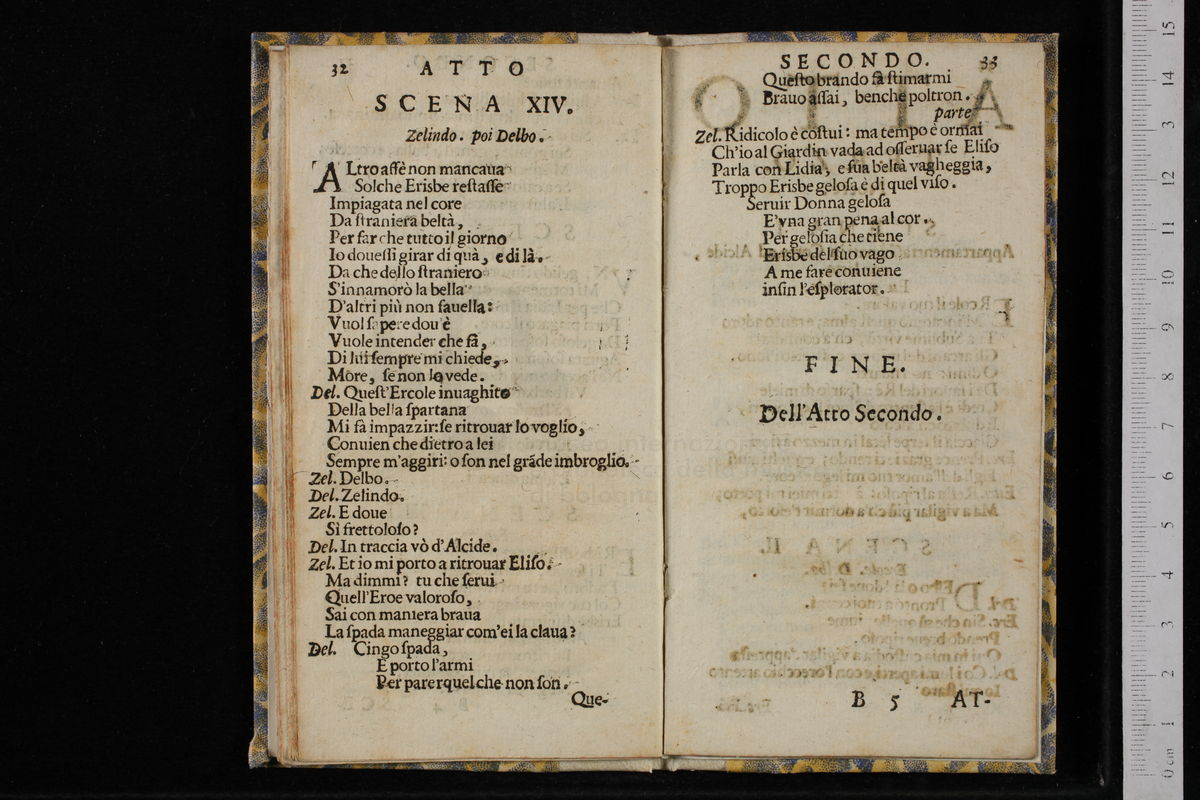 32 ATTO
SCENA XIV.
Zelindo. poi Delbo.
ALtro affè non mancaua
Solche Erisbe restasse
Impiagata nel core
Da straniera beltà,
Per far che tutto il giorno
Io douessi girar di quà, e di là.
Da che dello straniero
S'innamorò la bella
D'altri più non fauella:
Vuol sapere dou'è
Vuole intender che fà,
Di lui sempre mi chiede,
More, se non lo vede.
Del. Quest'Ercole inuaghito
Della bella spartana
Mi fà impazzir: se ritrouar lo voglio,
Conuien che dietro a lei
Sempre m'aggiri: o son nel grãde imbroglio.
Zel. Delbo.
Del. Zelindo.
Zel. E doue
Sì frettoloso?
Del. In traccia vò d'Alcide.
Zel. Et io mi porto a ritrouar Eliso.
Ma dimmi? tu che serui
Quell'Eroe valoroso,
Sai con maniera braua
La spada maneggiar com'ei la claua?
Del. Cingo spada,
E porto l'armi
Per parer quel che non son.
Que-
SECONDO. 33
Questo brando fà stimarmi
Brauo assai, benche poltron.
parte
Zel. Ridicolo è costui: ma tempo è ormai
Ch'io al Giardin vada ad osseruar se Eliso
Parla con Lidia, e sua beltà vagheggia,
Troppo Erisbe gelosa è di quel viso.
Seruir Donna gelosa
E'vna gran pena al cor.
Per gelosia che tiene
Erisbe del suo vago
A me fare conuiene
insin l'esplorator.
FINE.
Dell'Atto Secondo.
B 5 AT-